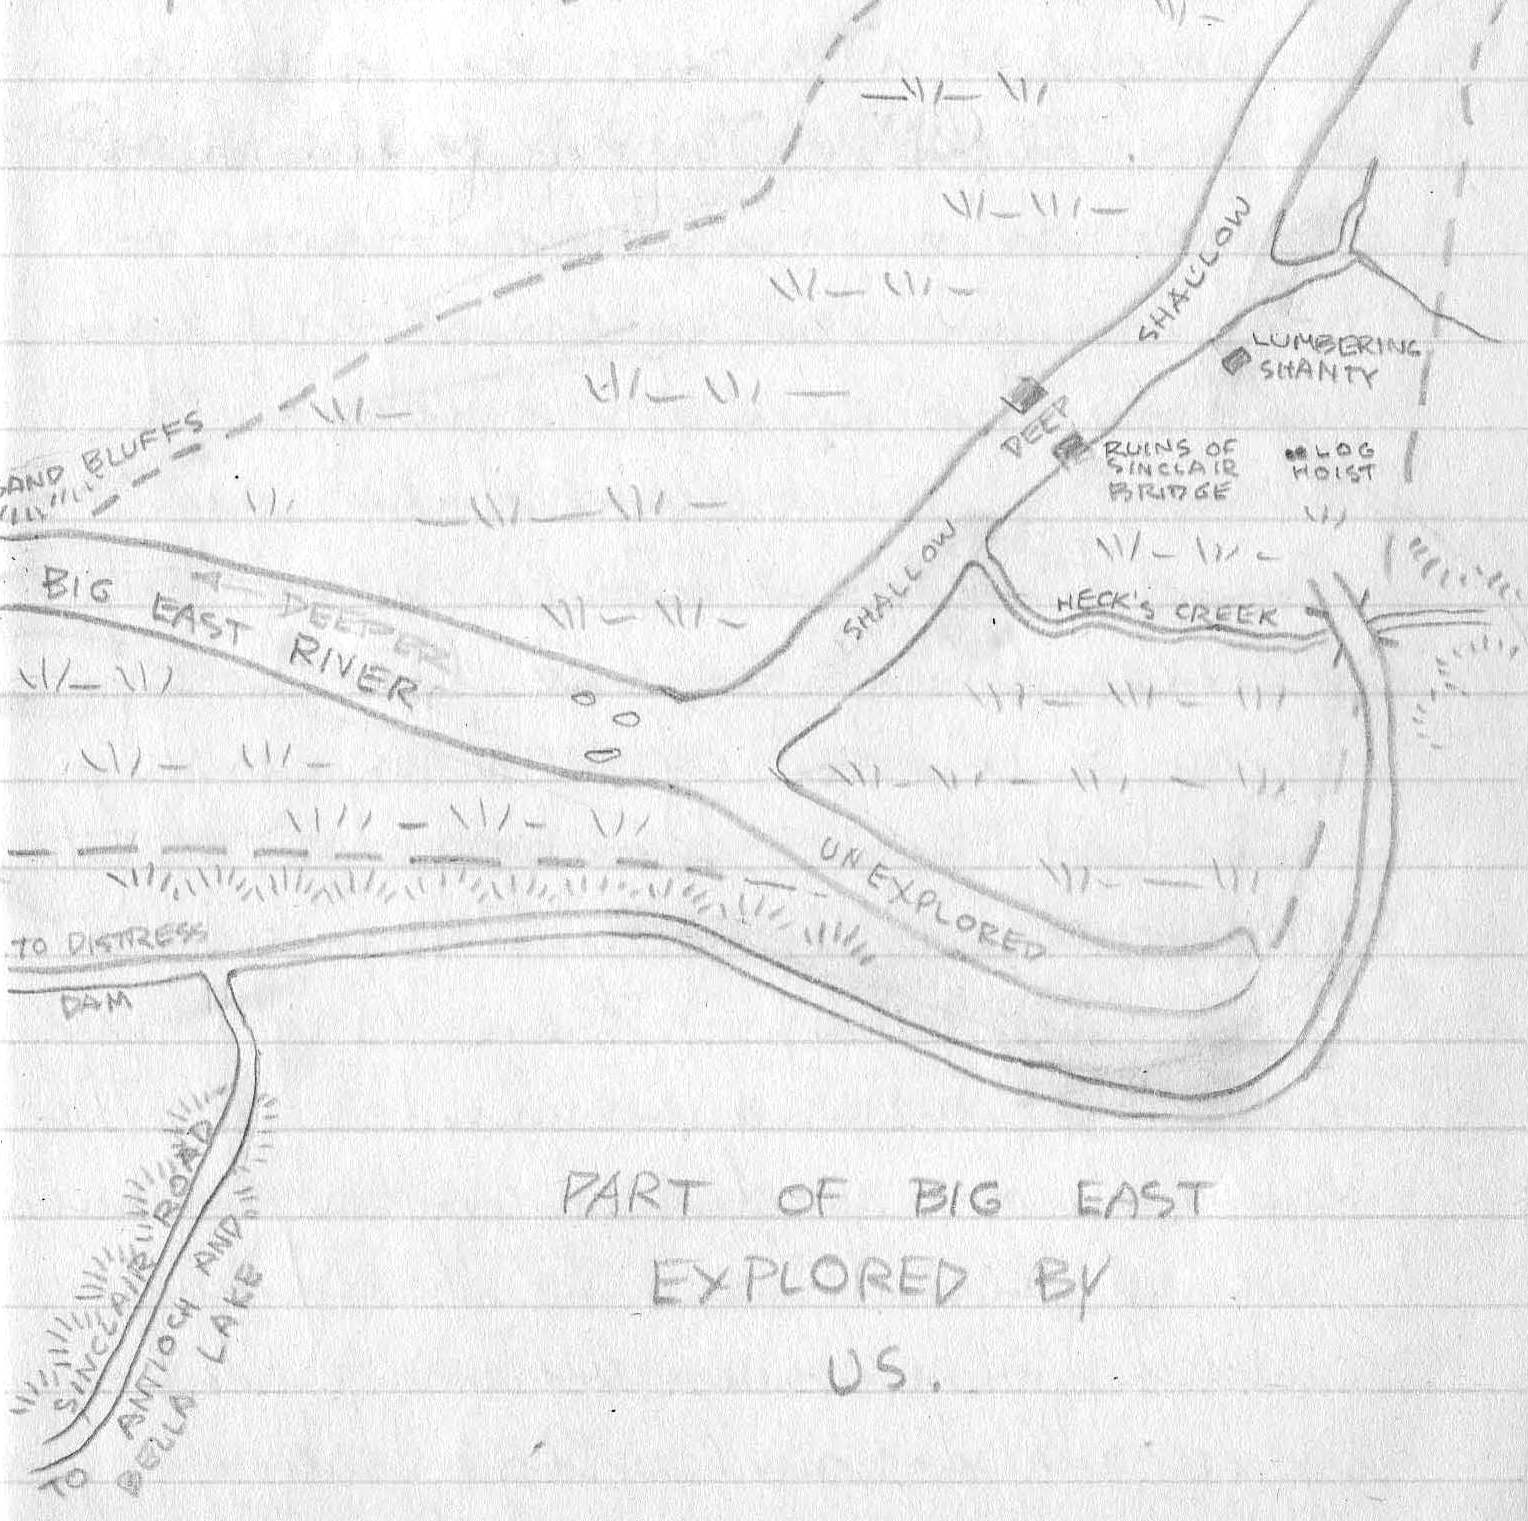 SHALLOW
LUMBERING
SHANTY
DEEP
RUINS OF
SINCLAIR
BRIDGE
LOG
HOIST
SAND BLUFFS
SHALLOW
BIG EAST RIVER
DEEPER
HECK'S CREEK
UNEXPLORED
TO DISTRESS
DAM
SINCLAIR ROAD
TO ANTIOCH AND
BELLA LAKE
PART OF BIG EAST
EXPLORED BY
US.